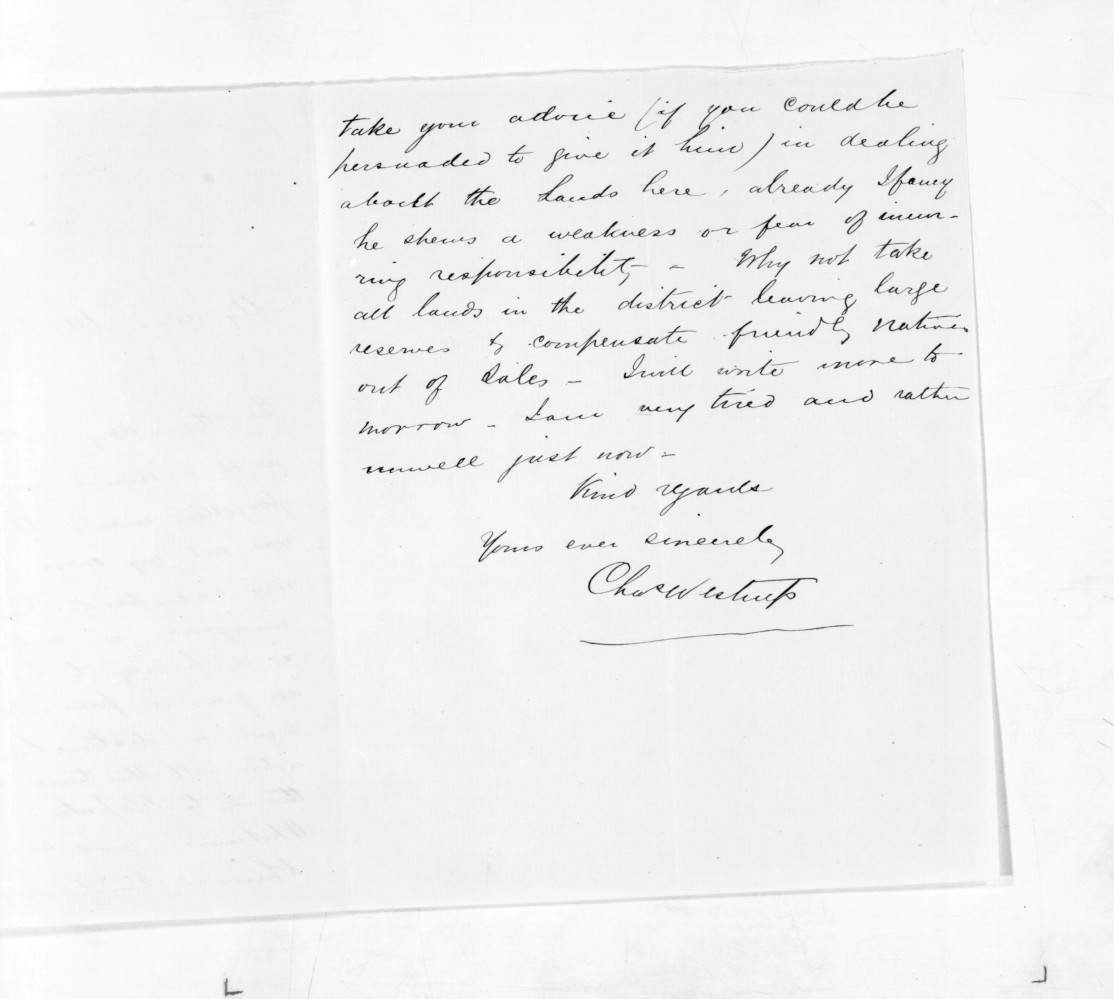 take your advice (if you could be
persuaded to give it him) in dealing
about the Lands here, already I fancy
he shews a weakness or fear of incur-
ring responsibility - Why not take
all lands in the district leaving large
reserves & compensate friendly natives
out of Sales - I will write more to
morrow - I am very tired and rather
unwell just now -
Kind regards
Yours ever sincerely
Chas Westrup